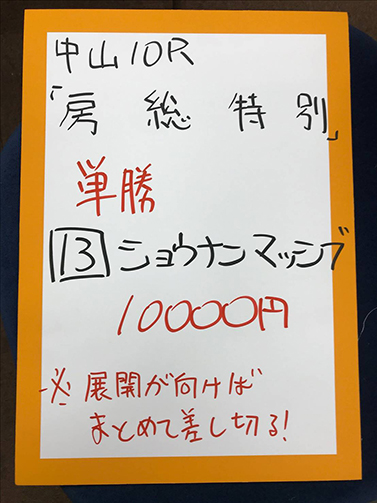 中山10R
「房総特別」
単勝
13 ショウナンマッシブ
10000円
※展開が向けば
まとめて差し切る!